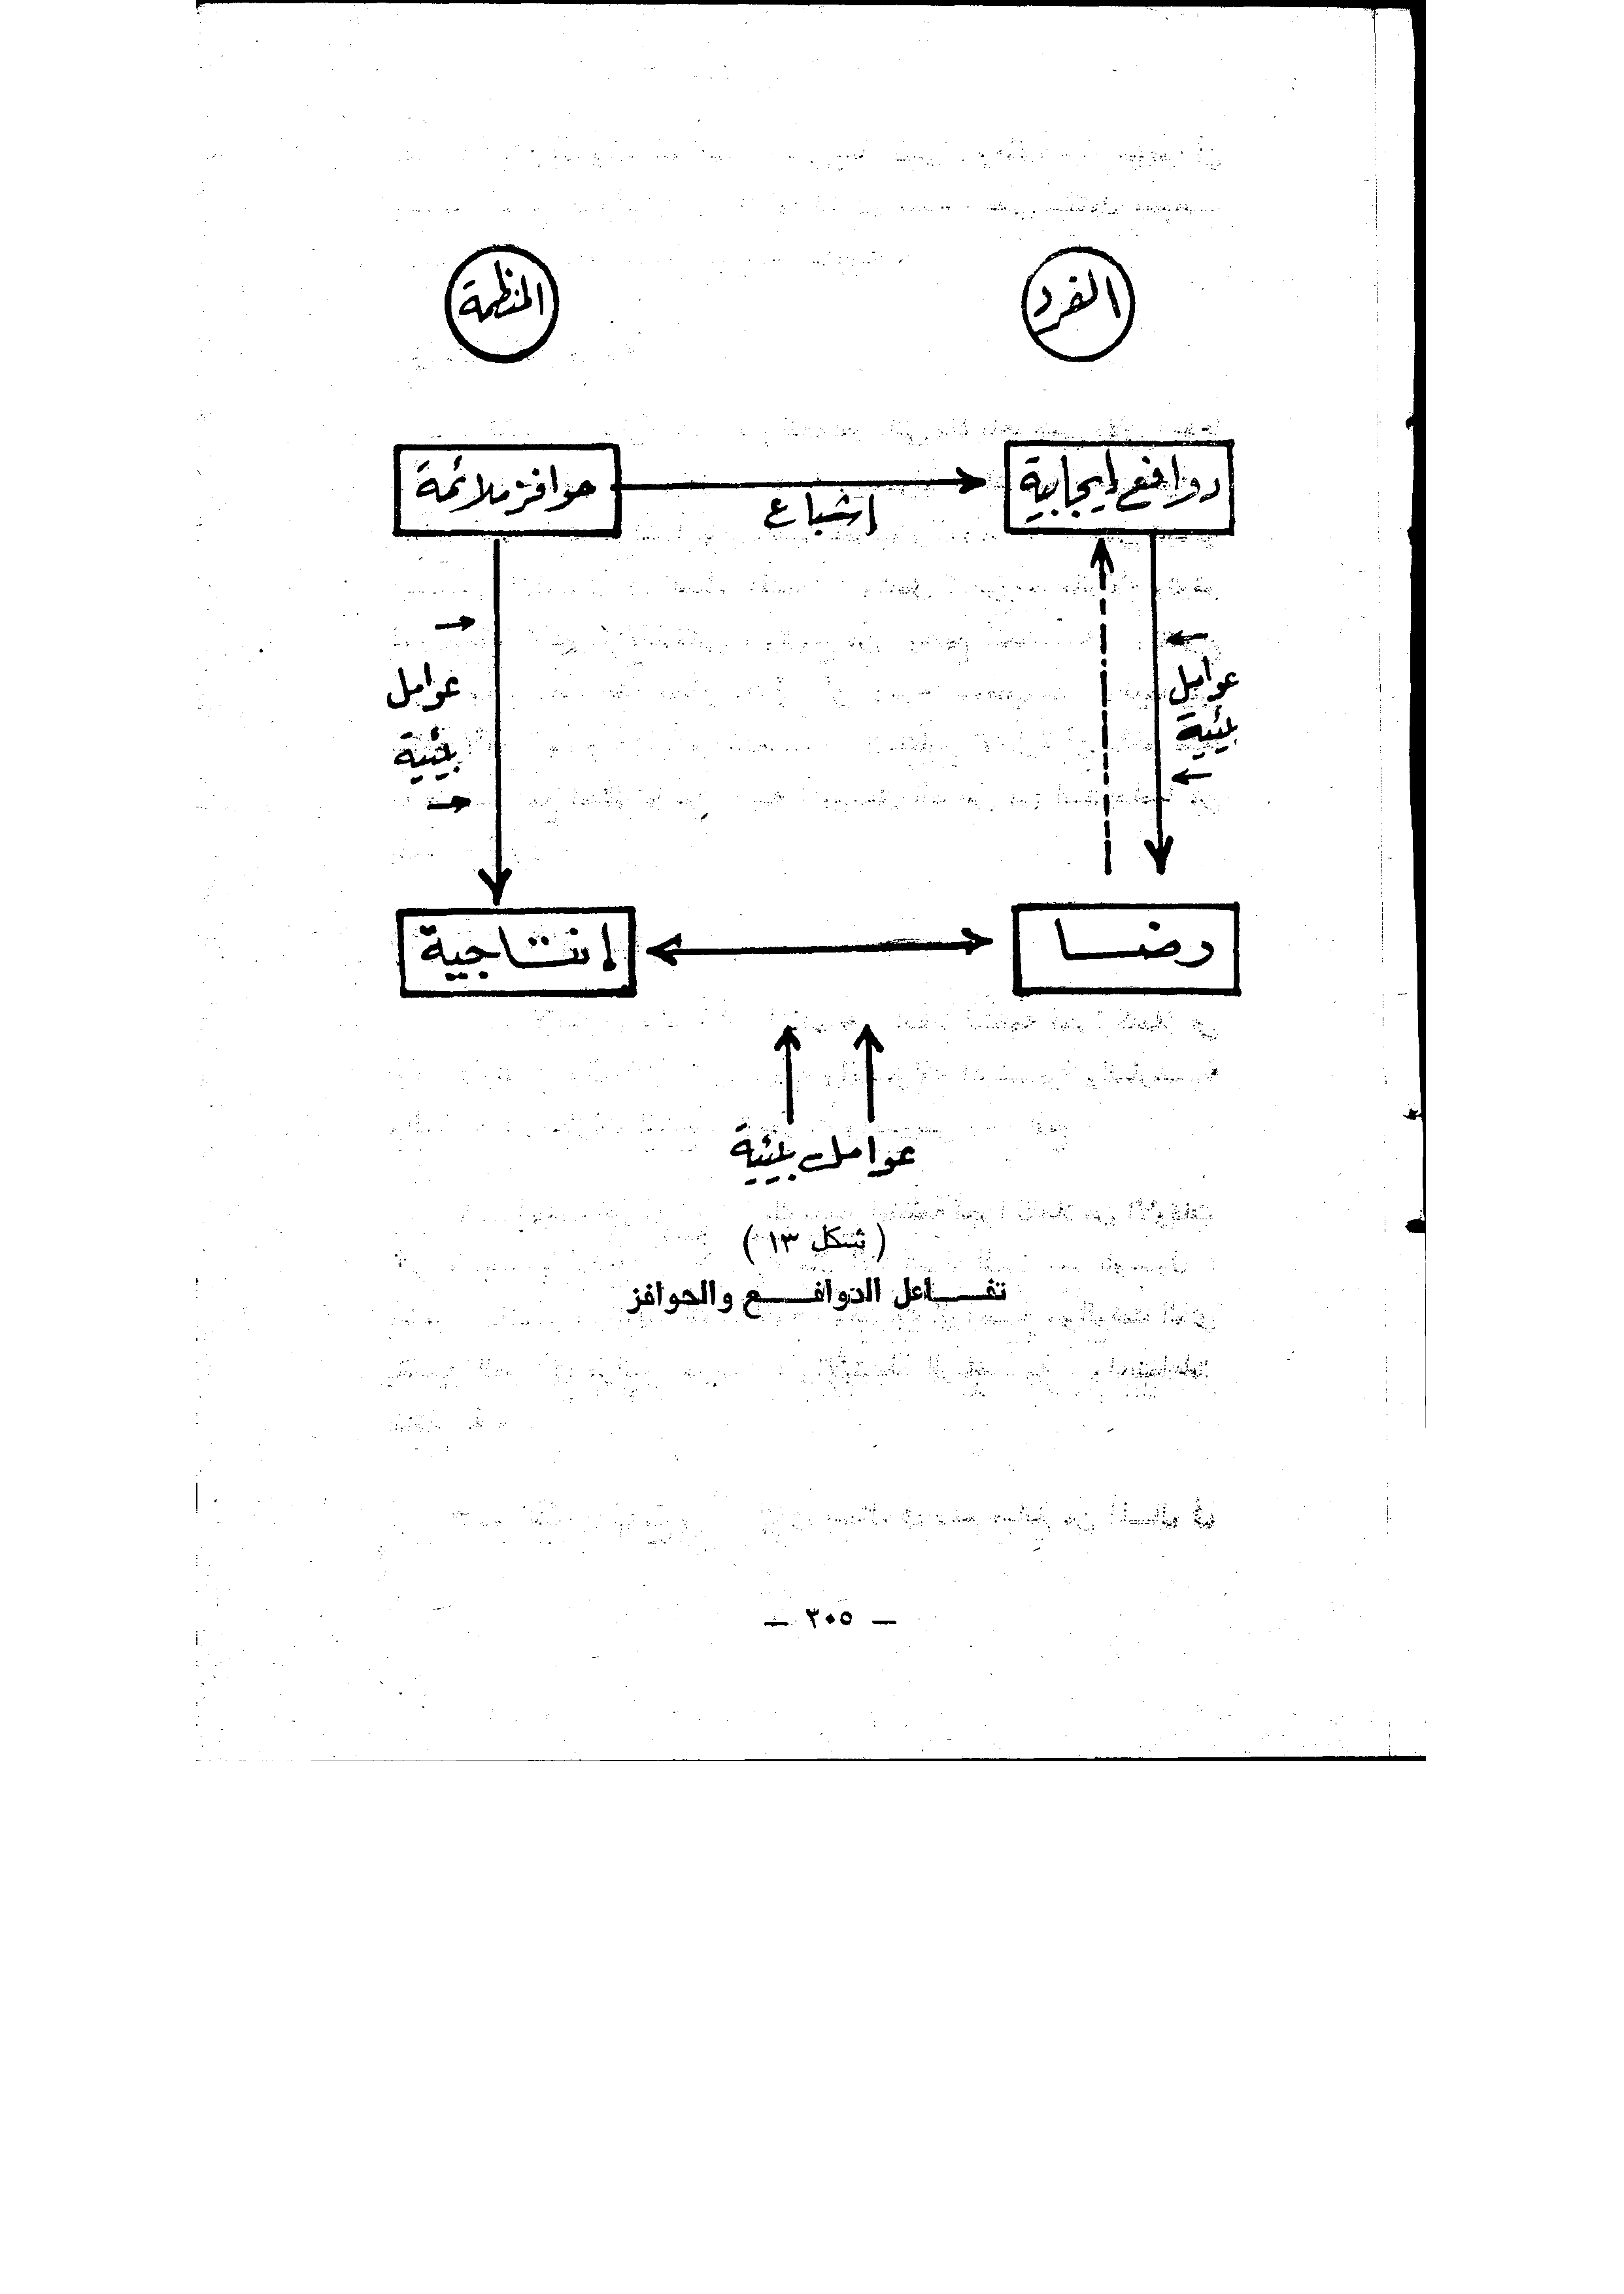 الفرد
المنظمة
دوافع إيجابية
حوافز ملائمة
إشباع
عوامل
بيئية
عوامل
بيئية
رضا
إنتاجية
عوامل بيئية
( شكل ١٣ )
تفاعل الدوافع والحوافز
— ٣٠٥ —